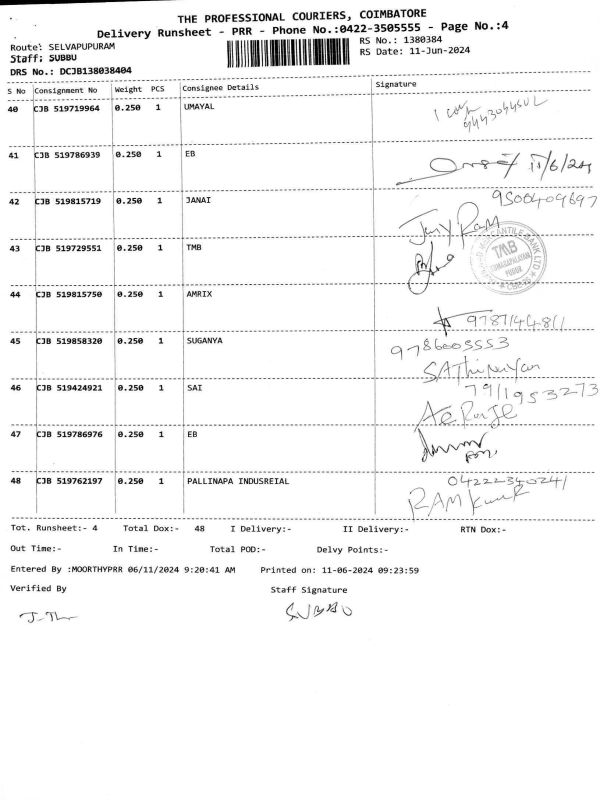 THE PROFESSIONAL COURIERS, COIMBATORE
Delivery Runsheet - PRR - Phone No.:0422-3505555 - Page No.:4
Route: SELVAPUPURAM RS No.: 1380384
Staff: SUBBU RS Date: 11-Jun-2024
DRS No.: DCJB138038404
S No Consignment No Weight PCS Consignee Details Signature
40 CJB 519719964 0.250 1 UMAYAL
41 CJB 519786939 0.250 1 EB
11/6/24
42 CJB 519815719 0.250 1 JANAI 9500409697
RAM
43 CJB 519729551 0.250 1 TMB
TMB
44 CJB 519815750 0.250 1 AMRIX
9787144811
45 CJB 519858320 0.250 1 SUGANYA 9786003553
46 CJB 519424921 0.250 1 SAI 7911953273
47 CJB 519786976 0.250 1 EB
48 CJB 519762197 0.250 1 PALLINAPA INDUSREIAL 04222340241
RAMKumaR
Tot. Runsheet:- 4 Total Dox:- 48 I Delivery:- II Delivery:- RTN Dox:-
Out Time:- In Time:- Total POD:- Delvy Points:-
Entered By :MOORTHYPRR 06/11/2024 9:20:41 AM Printed on: 11-06-2024 09:23:59
Verified By Staff Signature
SUBBU